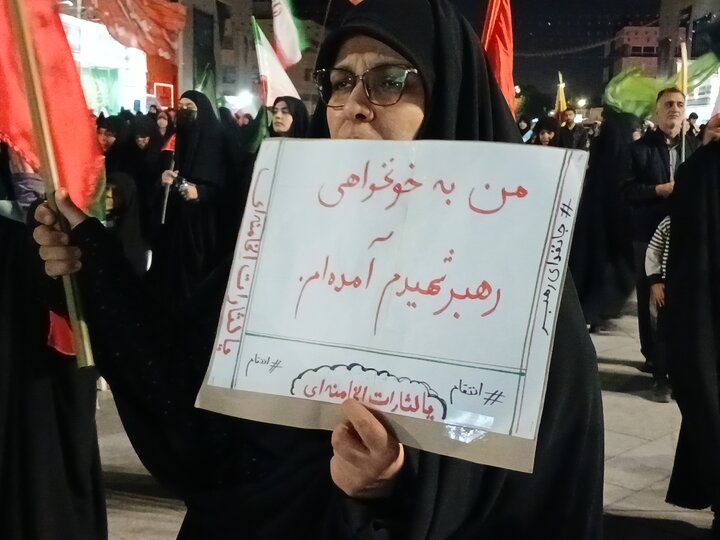 من به خونخواهی
رهبر شهیدم آمده‌ام.
#جانفدای رهبر
یا لثارات الخامنه‌ای
#انتقام
#انتقام
یا لثارات الخامنه‌ای